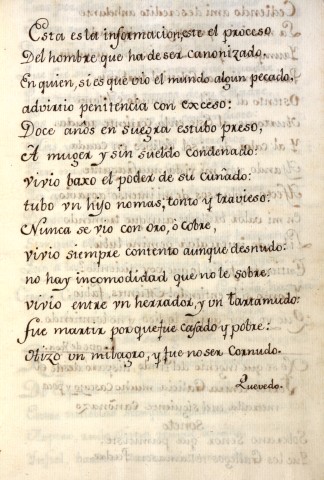 Esta es la informacion, este el proceso
Del hombre que ha de ser canonizado.
En quien, si es que vio el mundo algun pecado.
advirtio penitencia con exceso:
Doce años en suegra estubo preso,
A muger y sin sueldo condenado:
vivio baxo el poder de su cuñado:
tubo vn hijo no mas, tonto y travieso:
Nunca se vio con oro, ò cobre,
vivio siempre contento aunque desnudo:
no hay incomodidad que no le sobre.
vivio entre vn herrador, y vn tartamudo:
fue martir porque fue casado y pobre:
Hizo vn milagro, y fue no ser Cornudo.
Quevedo.